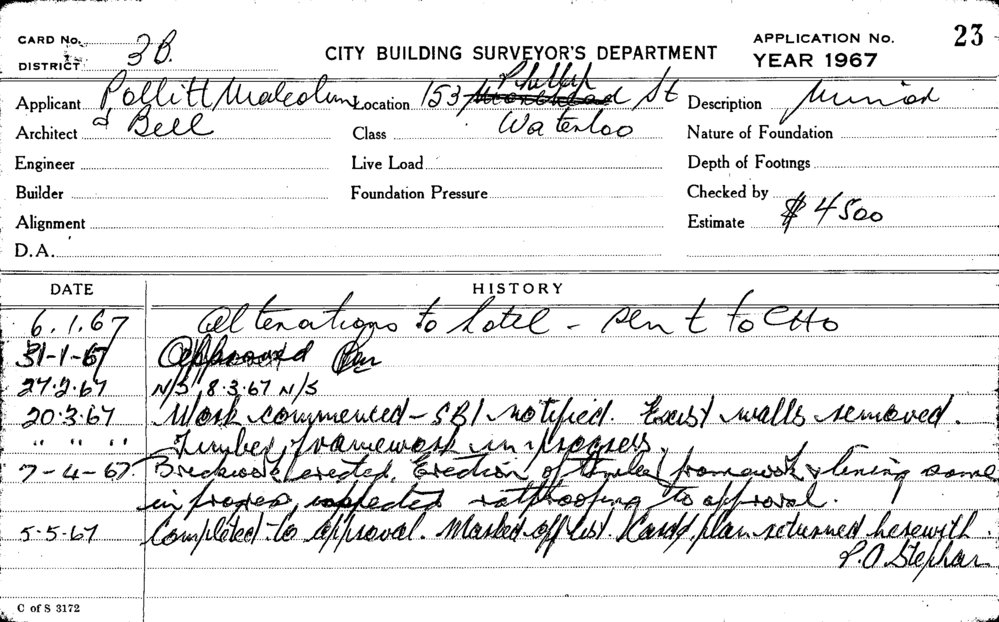 CARD No.
DISTRICT 3B.
CITY BUILDING SURVEYOR'S DEPARTMENT
APPLICATION No. 23
YEAR 1967
Applicant Pollitt Malcolm
& Bell
Location 153 Phillip St
Waterloo
Description Minior
Architect
Class
Nature of Foundation
Engineer
Live Load
Depth of Footings
Builder
Foundation Pressure
Checked by
Alignment
Estimate $ 4500
D.A.
DATE HISTORY
6.1.67 Alterations to hotel - sent to CHO
31-1-67 Approved
27.2.67 N/S 8.3.67 N/S
20.3.67 Work commenced - SBI notified. Exist walls removed.
" " " Timber framework in progress.
7-4-67. Brickwork erected. Erection of timber framework & lining same
in progress, inspected ratproofing to approval.
5.5.67 Completed to approval. Marked off list. Card & plan returned herewith.
P.O Stephan
C of S 3172